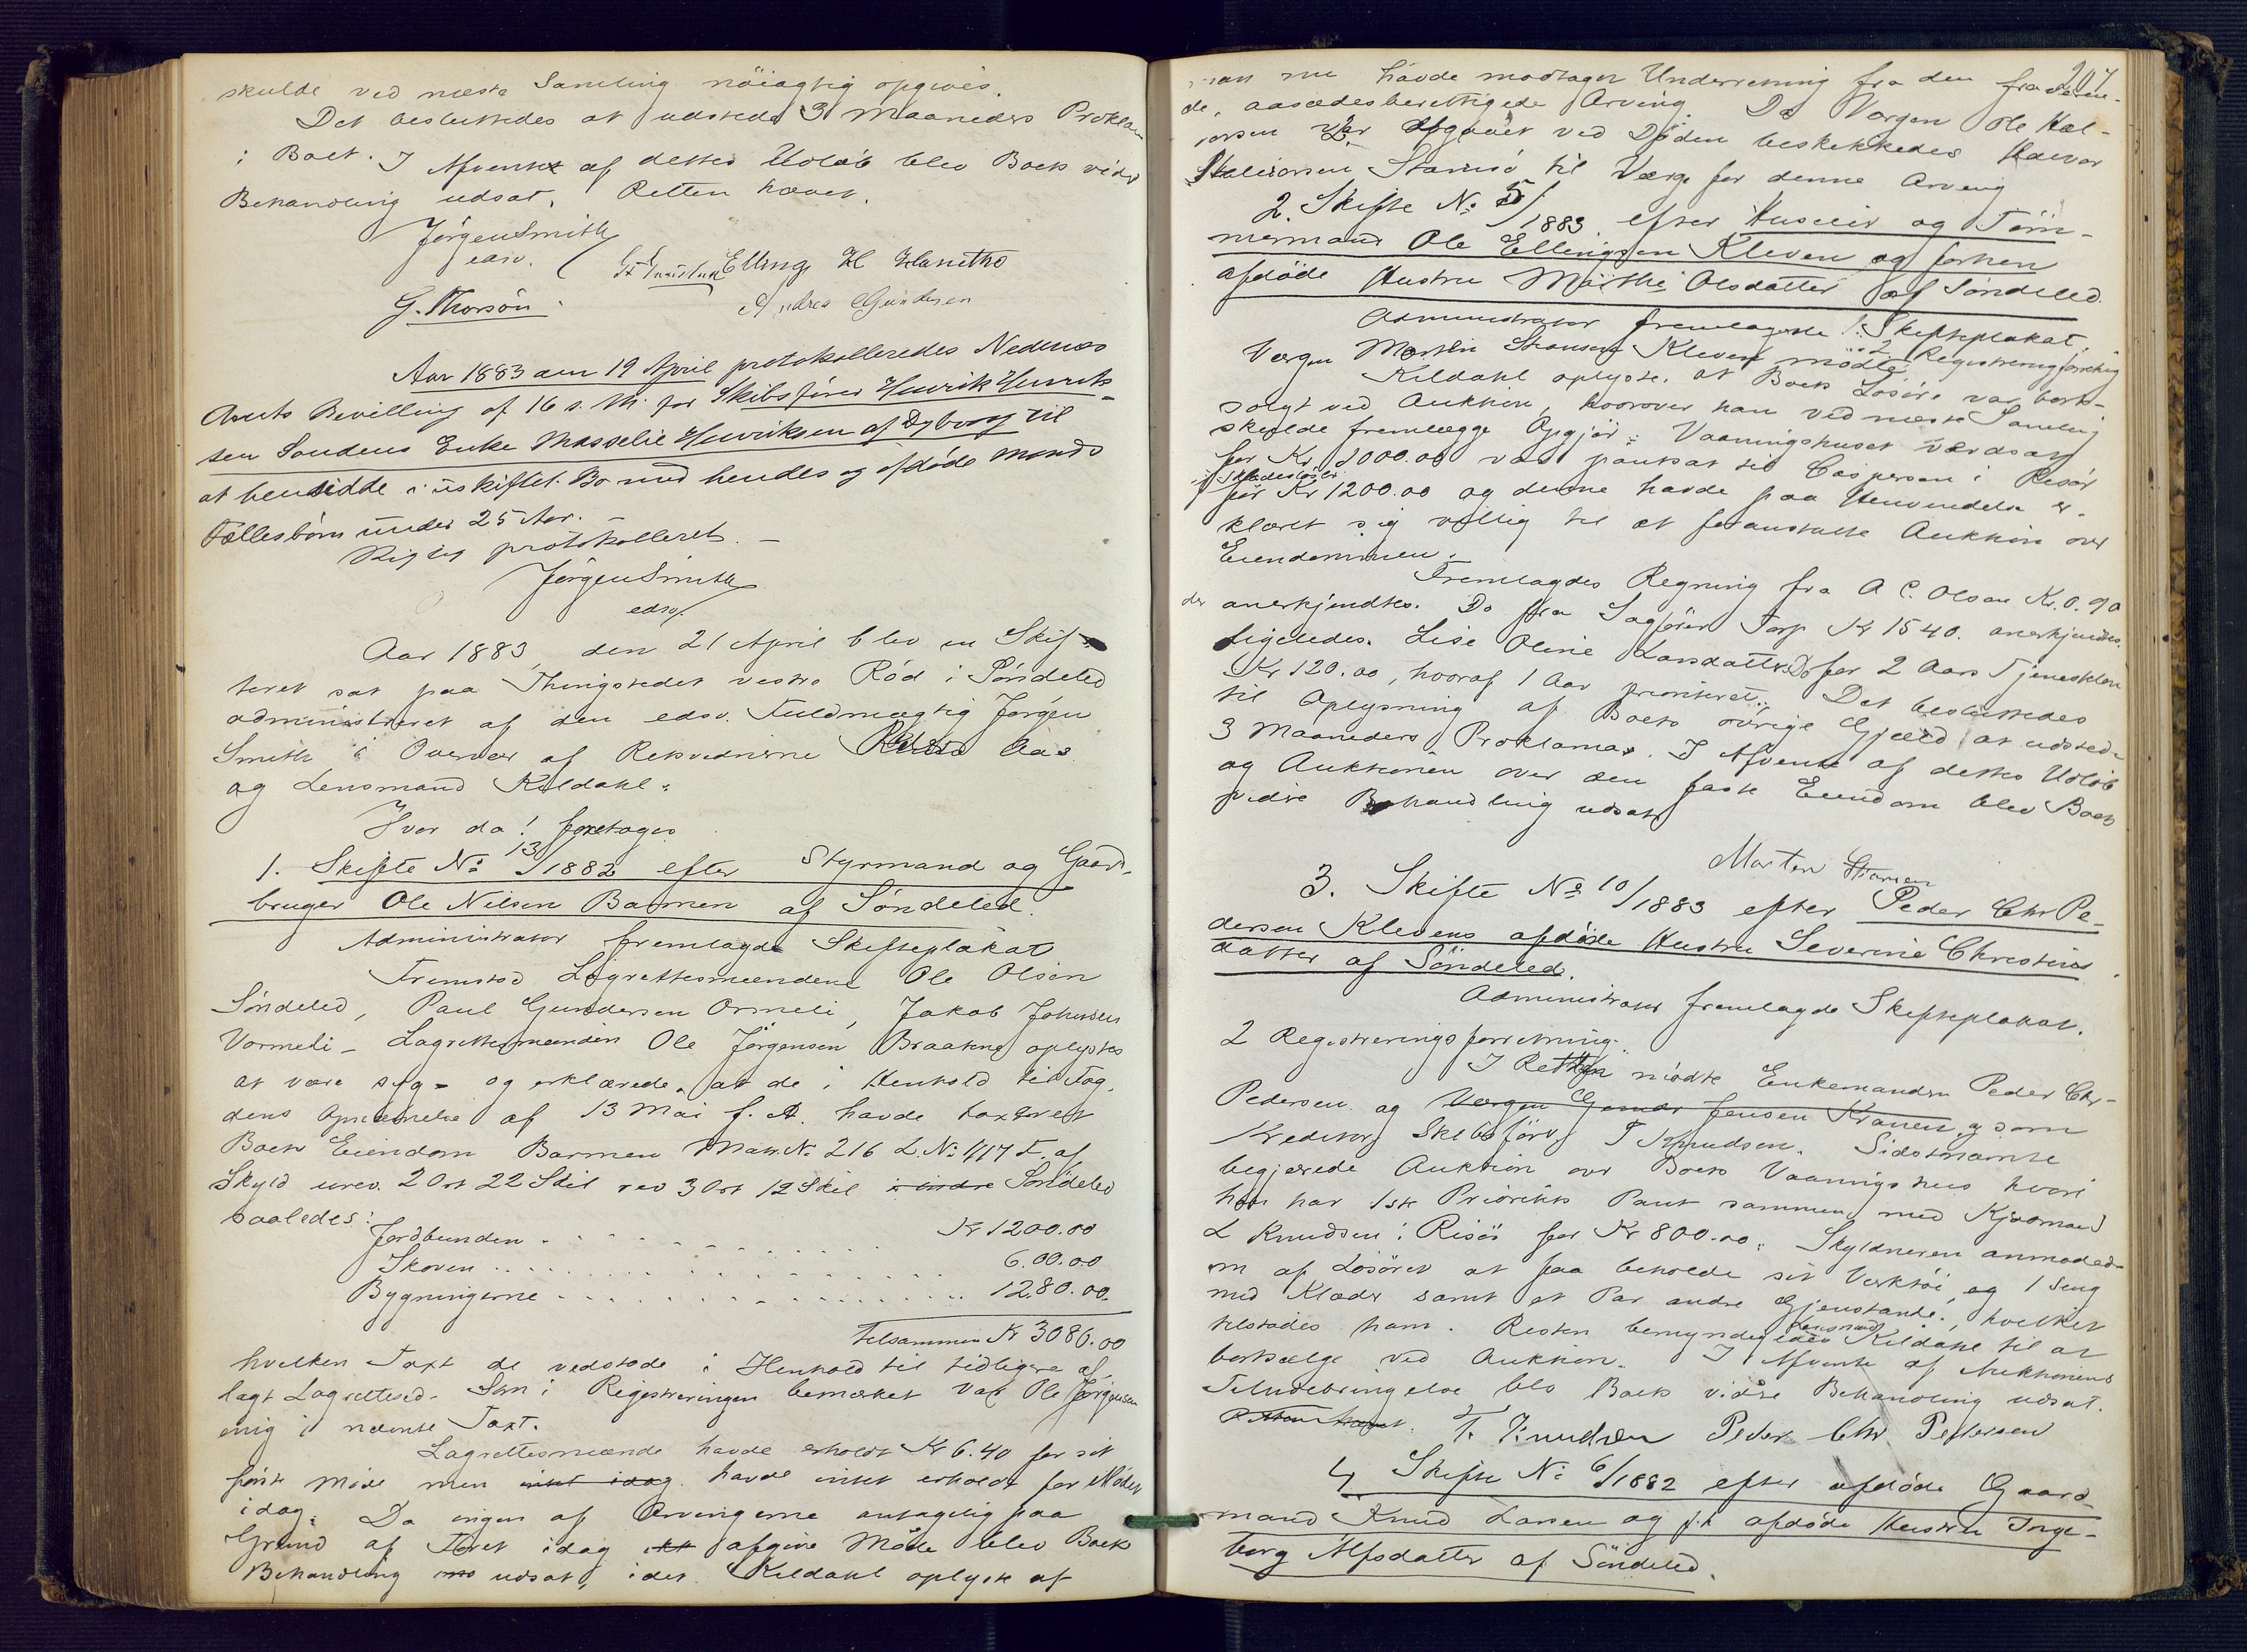 skulde ved næste Samling nöiagtig opgives.
Det besluttedes at udstede 3 Maaneders Proklama
i Boet. I Afvente af dettes Udlöb blev Boets vidre
Behandling udsat. Retten hævet.
Jörgen Smith
edsv.
Elling H
G. Thorsön
Andrea Gundersen
Aar 1883 den 19 April protokolleredes Nedenæs
Amts Bevilling af 16 s. M. for Skibsförer Henrik Henrik-
sen Sandens Enke Masselie Henriksen af Dybvaag til
at hensidde i uskiftet Bo med hendes og afdöde Mands
Fællesbörn under 25 Aar. -
Rigtig protokolleret. -
Jörgen Smith
edsv.
Aar 1883, den 21 April blev en Skif-
teret sat paa Thingstedet vestre Röd i Söndeled
administreret af den edsv. Fuldmægtig Jörgen
Smith i Overvær af Retsvidnerne Aas
og Lensmand Kildahl.
Hvor da! foretoges
1. Skifte No 13/1882 efter Styrmand og Gaard-
bruger Ole Nilsen Barmen af Söndeled.
Administrator fremlagde Skifteplakat
Fremstod Lagrettesmændene Ole Olsen
Söndeled, Paul Gundersen Ormeli, Jakob Johnsen
Vormeli - Lagrettesmanden Ole Jörgensen Braaten oplystes
at være syg - og erklærede, at de i Henhold til Fog-
dens Opnævnelse af 13 Mai f. A. havde taxeret
Boets Eiendom Barmen Matr. No 216 L. No 117 f. af
Skyld urev. 2 Ort 22 Skil rev 3 Ort 12 Skil i indre Söndeled
saaledes:
Jordbunden . . . . . . . . . Kr 1200.00
Skoven . . . . . . . . . . . . 6.00.00
Bygningerne . . . . . . . . . . 12,80.00.
Tilsammen Kr 3080.00
hvilken Taxt de vedstode i Henhold til tidligere af-
lagt Lagrettesed. Som i Registreringen bemærket var Ole Jørgensen
enig i nævnte Taxt.
Lagrettesmændene havde erholdt Kr 6.40 for sit
förste Möde men intet idag havde intet erholdt for Mödet
idag. Da ingen af Arvingerne antagelig paa
Grund af Föret idag afgive Möde blev Boets
Behandling udsat, idet Kildahl oplyste at
207
man nu havde modtaget Underretning fra den fraværen-
de, aasædesberettigede Arving. Da Værgen Ole Hal-
vorsen var afgaaet ved Döden beskikkedes Halvor
Halvorsen Stamsö til Værge for denne Arving
2. Skifte No 5/1883 efter Huseier og Töm-
mermand Ole Ellingsen Kleven og forhen
afdöde Hustru Märthe Olsdatter af Söndeled.
Administrator fremlagde 1. Skifteplakat,
2 Registreringsforretning
Værgen Morten Hansen Kleven mödte.
Kildahl oplyste, at Boets Lösöre var bort-
solgt ved Auktion, hvorover han ved næste Samling
skulde fremlægge Opgjör. Vaaningshuset værdsat
for Kr. 1000.00 var pantsat til Caspersen i Risör
skadeslös
for Kr 1200.00 og denne havde paa Henvendelse er-
klæret sig villig til at foranstalte Auktion over
Eiendommen.
Fremlagdes Regning fra A C. Olsen Kr. 0.90
der anerkjendtes. Do fra Sagförer Torp Kr 1540. anerkjendtes
ligeledes. Lise Oline Larsdatter Do for 2 Aars Tjenestelön
Kr 120.00, hvoraf 1 Aar prioriteret. Det besluttedes
til Oplysning af Boets övrige Gjæld at udstede
3 Maaneders Proklama. I Afvente af dettes Udlöb
og Auktionen over den faste Eiendom blev Boets
vidre Behandling udsat
Morten Hansen
3. Skifte No 10/1883 efter Peder Chr Pe-
dersen Klevens afdöde Hustru Severine Christens
datter af Söndeled.
Administrator fremlagde Skifteplakat.
2 Registreringsforretning.
I Retten mödte Enkemanden Peder Chr-
Pedersen og Værgen Gunder Jensen Kranen, som
Kreditor Skibsförer T Knudsen. Sidstnævnte
begjærede Auktion over Boets Vaaningshus hvori
han har 1ste Prioritets Pant sammen med Kjöbmand
L Knudsen i Risör for Kr 800.00. Skyldneren anmodede
om af Lösöret at faa beholde sit Værktöi, og 1 Seng
med Klæder samt et Par andre Gjenstande, hvilket
tilstodes ham. Resten bemyndigedes Lensmand Kildahl til at
bortsælge ved Auktion. I Afvente af Auktionens
Tilendebringelse blev Boets vidre Behandling udsat.
Retten hævet. T. Knudsen Peder Chr. Pedersen
4. Skifte No 6/1882 efter afdöde Gaard-
mand Knud Larsen og f.h. afdöde Hustru Inge-
borg Alfsdatter af Söndeled.